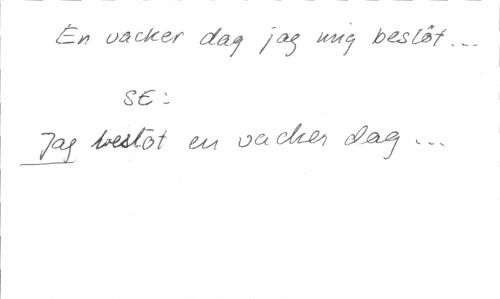 En vacker dag jag mig beslöt...
SE:
Jag beslöt en vacker dag...